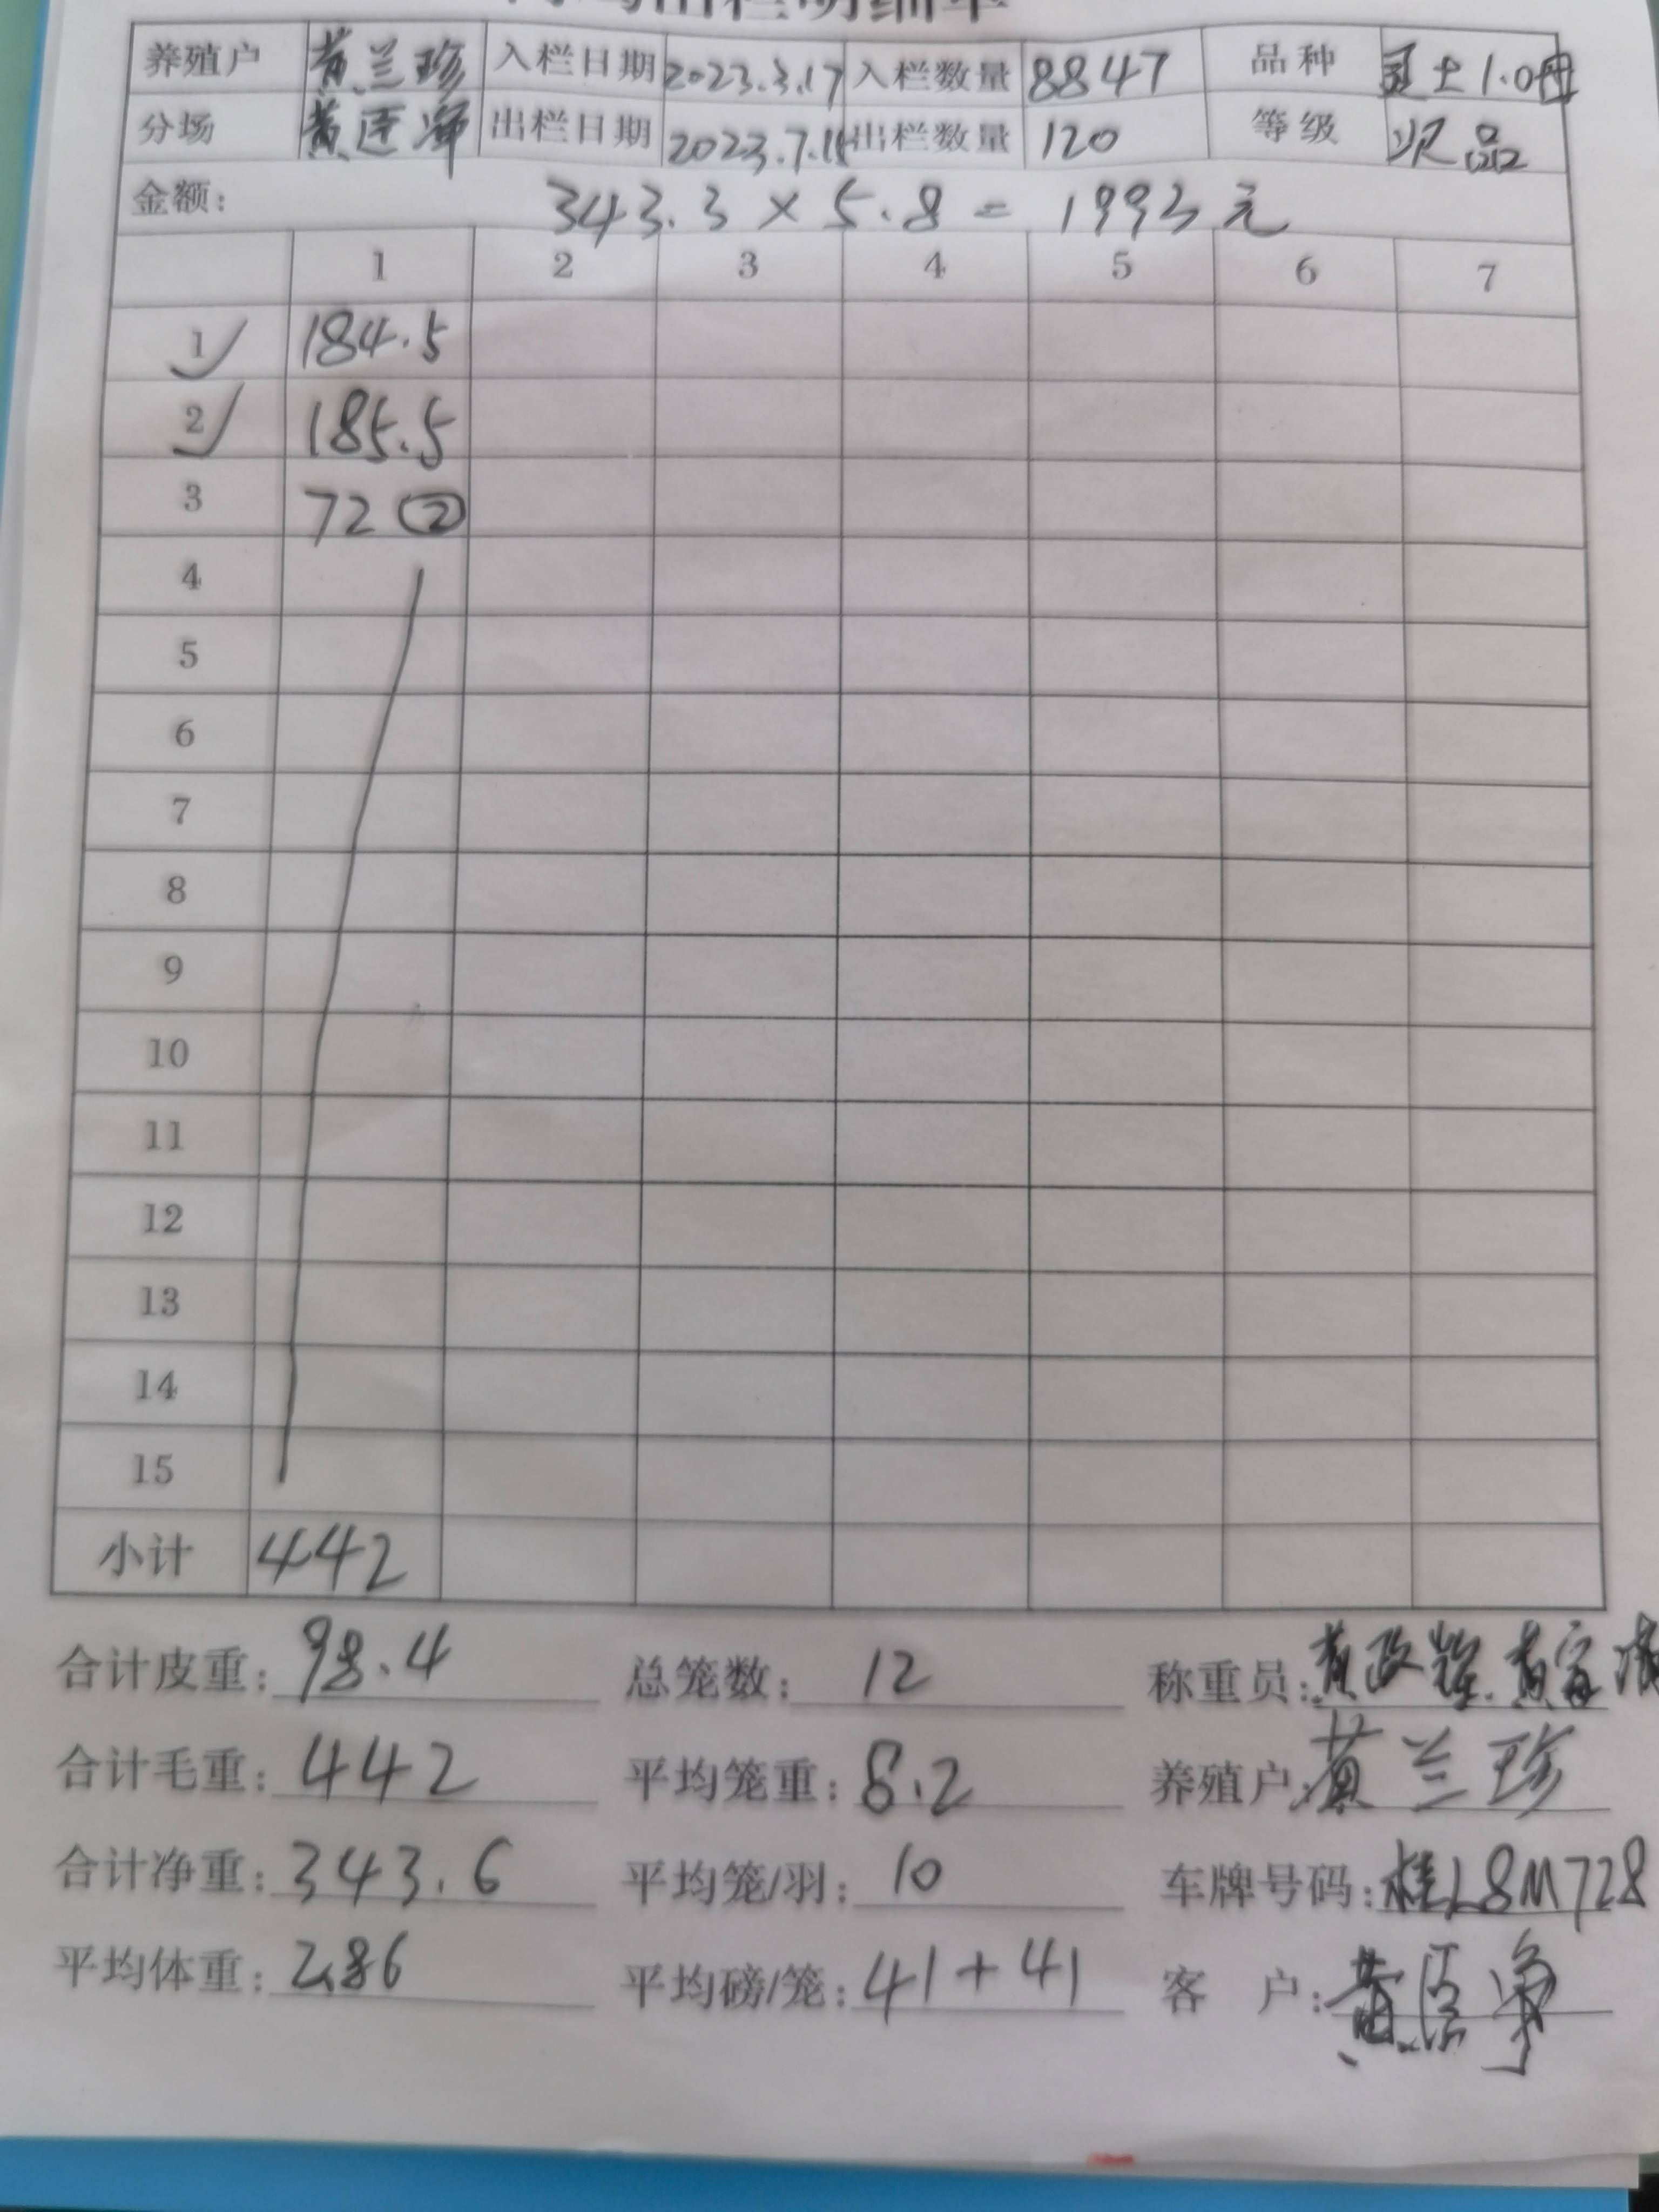 出栏明细单
养殖户 黄兰珍 入栏日期 2023.3.17 入栏数量 8847 品种 土1.0母
分场 黄 出栏日期 2023.7.11 出栏数量 120 等级 次品
金额: 343.3 × 5.8 = 1993元
1 2 3 4 5 6 7
1 184.5
2 185.5
3 72 ②
4
5
6
7
8
9
10
11
12
13
14
15
小计 442
合计皮重: 98.4 总笼数: 12 称重员: 黄政 黄
合计毛重: 442 平均笼重: 8.2 养殖户: 黄兰珍
合计净重: 343.6 平均笼/羽: 10 车牌号码: 桂L8M728
平均体重: 2.86 平均磅/笼: 41+41 客 户: 黄